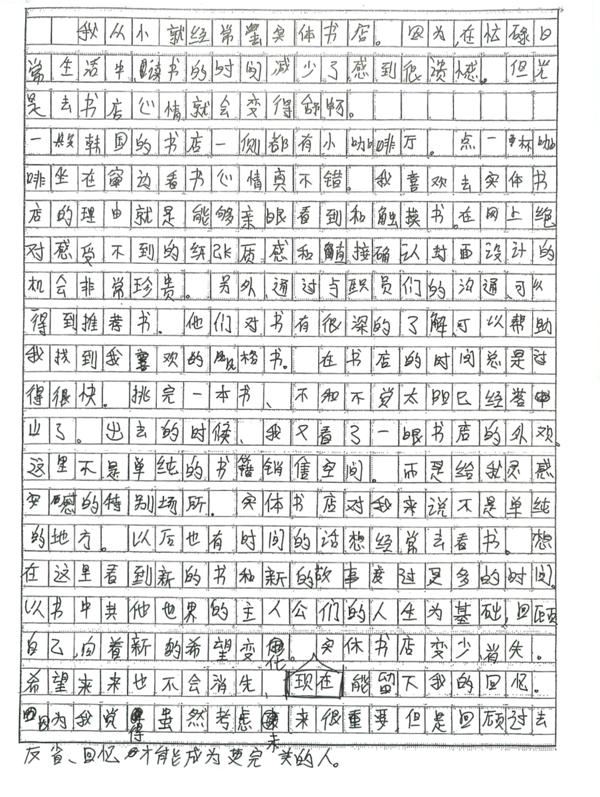 我从小就经常罢实体书店。因为,在忙碌日
常生活中,读书的时间减少了,感到很遗憾。但光
是去书店心情就会变得舒畅。
一般韩国的书店一侧都有小咖啡厅。点一杯咖
啡坐在窗边看书心情真不错。我喜欢去实体书
店的理由就是能够亲眼看到和触摸书。在网上绝
对感受不到的纸张质感和直接确认封面设计的
机会非常珍贵。另外,通过与职员们的沟通,可以
得到推荐书。他们对书有很深的了解,可以帮助
我找到我喜欢的风格书。在书店的时间总是过
得很快。挑完一本书、不知不觉太阳已经落
山了。出去的时候、我又看了一眼书店的外观。
这里不是单纯的书籍销售空间。而是给我灵感
实感的特别场所。实体书店对我来说不是单纯
的地方。以后也有时间的话想经常去看书。想
在这里看到新的书和新的故事度过更多的时间。
以书中其他世界的主人公们的人生为基础,回顾
自己,向着新的希望变化。实体书店变少,消失。
希望未来也不会消失、现在能留下我的回忆。
因为我觉得虽然考虑未来很重要,但是回顾过去
反省、回忆才能成为更完美的人。